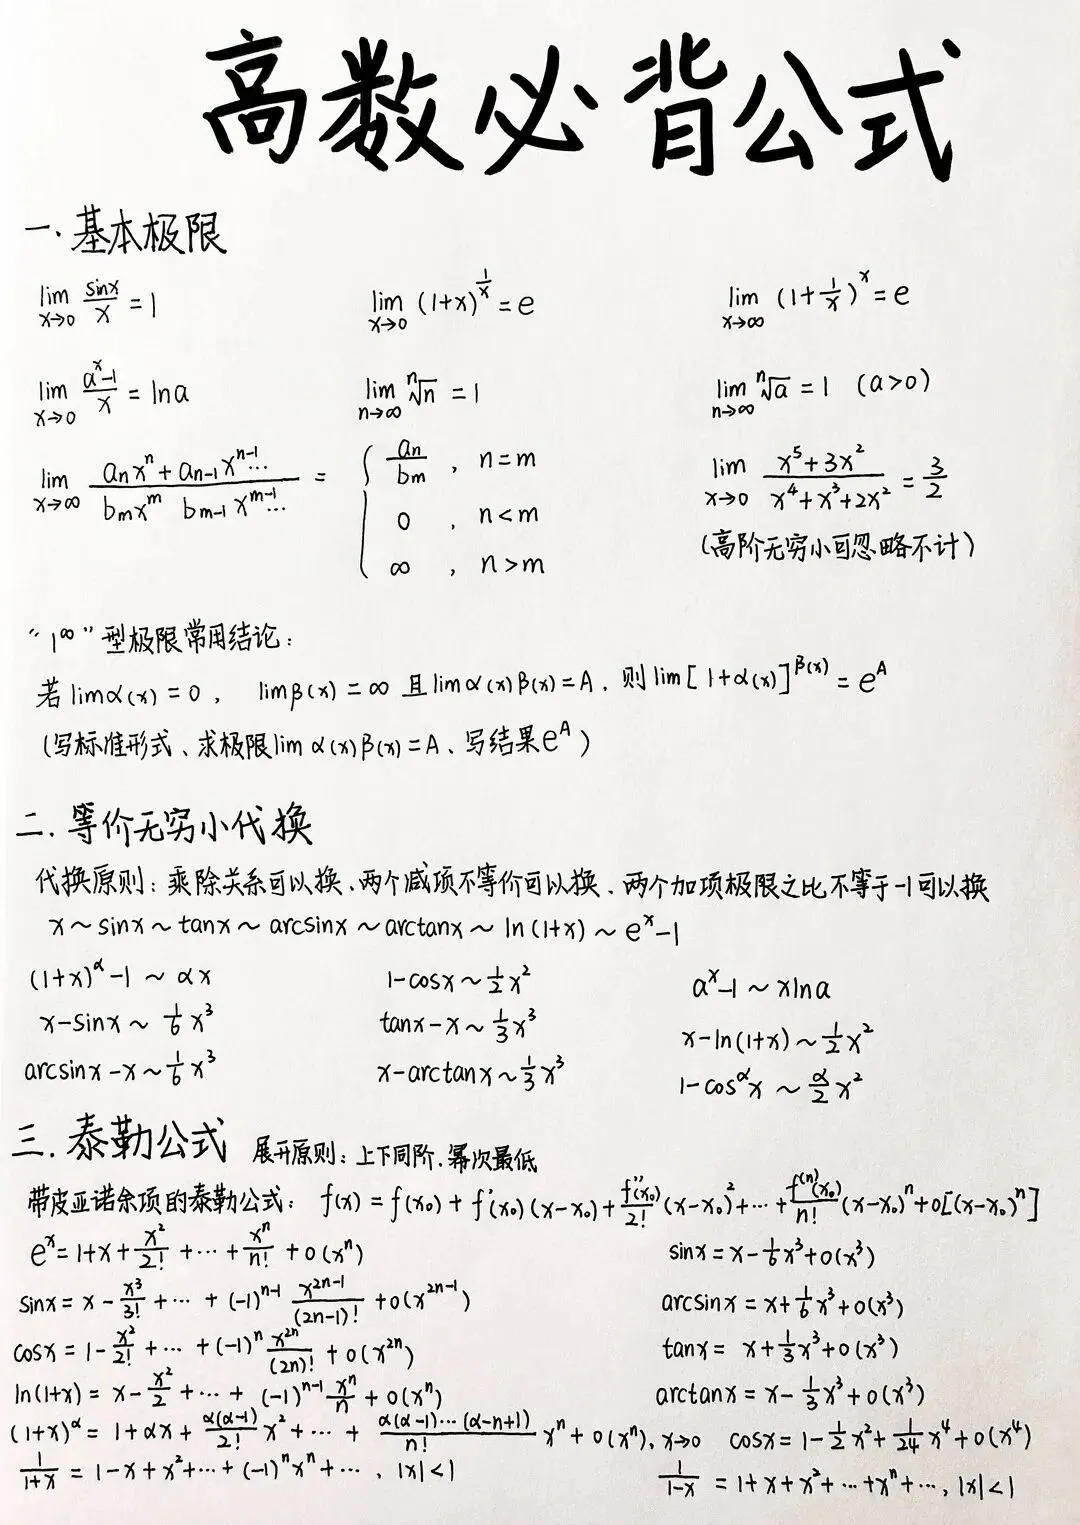 高数必背公式
一.基本极限
lim x→0 sinx/x = 1    lim x→0 (1+x)^(1/x) = e    lim x→∞ (1+1/x)^x = e
lim x→0 (a^x-1)/x = lna    lim n→∞ ⁿ√n = 1    lim n→∞ ⁿ√a = 1 (a>0)
lim x→∞ (aₙxⁿ+aₙ₋₁xⁿ⁻¹…)/(bₘxᵐ bₘ₋₁xᵐ⁻¹…) = { aₙ/bₘ , n=m    lim x→0 (x⁵+3x²)/(x⁴+x³+2x²) = 3/2
0 , n<m
∞ , n>m    (高阶无穷小可忽略不计)
“1^∞”型极限常用结论:
若limα(x)=0, limβ(x)=∞ 且limα(x)β(x)=A, 则lim[1+α(x)]^β(x) = e^A
(写标准形式、求极限lim α(x)β(x)=A、写结果e^A)
二.等价无穷小代换
代换原则:乘除关系可以换、两个减项不等价可以换、两个加项极限之比不等于-1可以换
x~sinx~tanx~arcsinx~arctanx~ln(1+x)~e^x-1
(1+x)^α-1~αx    1-cosx~1/2x²    a^x-1~xlna
x-sinx~1/6x³    tanx-x~1/3x³    x-ln(1+x)~1/2x²
arcsinx-x~1/6x³    x-arctanx~1/3x³    1-cos^αx~α/2x²
三.泰勒公式 展开原则:上下同阶.幂次最低
带皮亚诺余项的泰勒公式: f(x)=f(x₀)+f'(x₀)(x-x₀)+f''(x₀)/2!(x-x₀)²+…+f^(n)(x₀)/n!(x-x₀)ⁿ+o[(x-x₀)ⁿ]
e^x=1+x+x²/2!+…+xⁿ/n!+o(xⁿ)    sinx=x-1/6x³+o(x³)
sinx=x-x³/3!+…+(-1)^(n-1) x^(2n-1)/(2n-1)!+o(x^(2n-1))    arcsinx=x+1/6x³+o(x³)
cosx=1-x²/2!+…+(-1)ⁿ x^(2n)/(2n)!+o(x^(2n))    tanx=x+1/3x³+o(x³)
ln(1+x)=x-x²/2+…+(-1)^(n-1) xⁿ/n+o(xⁿ)    arctanx=x-1/3x³+o(x³)
(1+x)^α=1+αx+α(α-1)/2!x²+…+α(α-1)…(α-n+1)/n! xⁿ+o(xⁿ), x→0    cosx=1-1/2x²+1/24x⁴+o(x⁴)
1/(1+x)=1-x+x²+…+(-1)ⁿxⁿ+…, |x|<1    1/(1-x)=1+x+x²+…+xⁿ+…, |x|<1